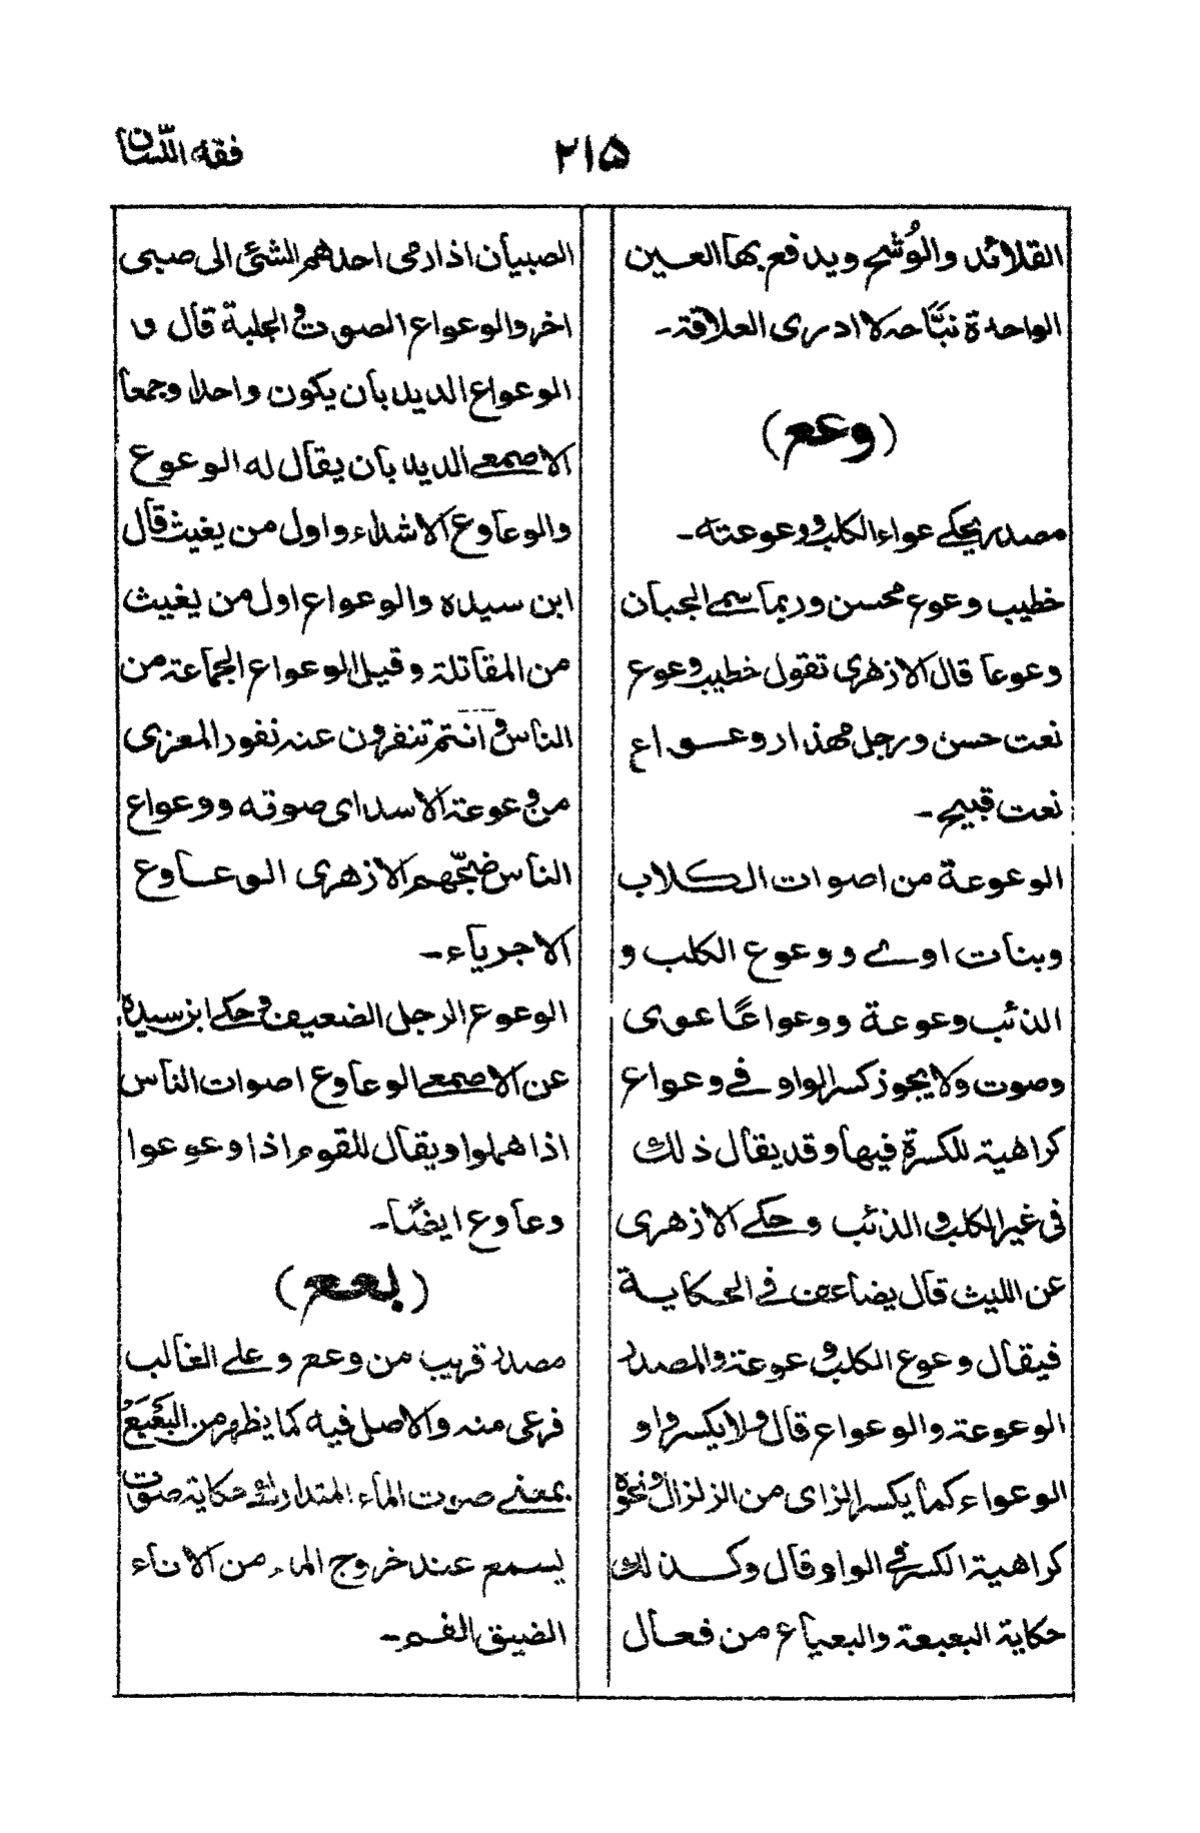 فقه اللّسان
٢١٥
القلائد والوُشح ويدفع بها العين
الواحدة نبّاحه لا ادرى العلاقة۔
(وعع)
مصدر يحكى عواء الكلب ووعوعته۔
خطيب وعوع محسن وربما سمى الجبان
وعوعا قال الازهرى تقول خطيب وعوع
نعت حسن ورجل مهذار وعواع
نعت قبيح۔
الوعوعة من اصوات الكلاب
وبنات اوى ووعوع الكلب و
الذئب وعوعة ووعواعًا عوى
وصوت ولا يجوز كسر الواو فى وعواع
كراهية للكسرة فيها وقد يقال ذلك
فى غير الكلب والذئب وحكى الازهرى
عن الليث قال يضاعف فى الحكاية
فيقال وعوع الكلب وعوعة والمصدر
الوعوعة والوعواع قال ولا يكسر واو
الوعواع كما يكسر الزاى من الزلزال ونحوه
كراهية الكسر فى الواو قال وكذلك
حكاية البعبعة والبعباع من فعال
الصبيان اذا رمى احدهم الشئ الى صبى
اخر والوعواع الصوت والجلبة قال و
الوعواع الديدبان يكون واحدا وجمعا
الاصمعى الديدبان يقال له الوعوع
والوعاوع الاشداء واول من يغيث قال
ابن سيده والوعواع اول من يغيث
من المقاتلة وقيل الوعواع الجماعة من
الناس وانتم تنفرون عنه نفور المعزى
من وعوعة الاسد اى صوته ووعواع
الناس ضجّتهم الازهرى الوعاوع
الاجرياء۔
الوعوع الرجل الضعيف وحكى ابن سيده
عن الاصمعى الوعاوع اصوات الناس
اذا هملوا ويقال للقوم اذا وعوعوا
وعاوع ايضًا۔
(بعع)
مصدر قريب من وعع وعلى الغالب
فرعى منه والاصل فيه كما يظهر من البَعْبَعْ
بمعنى صوت الماء المتدارك حكاية صوت
يسمع عند خروج الماء من الاناء
الضيق الفم۔